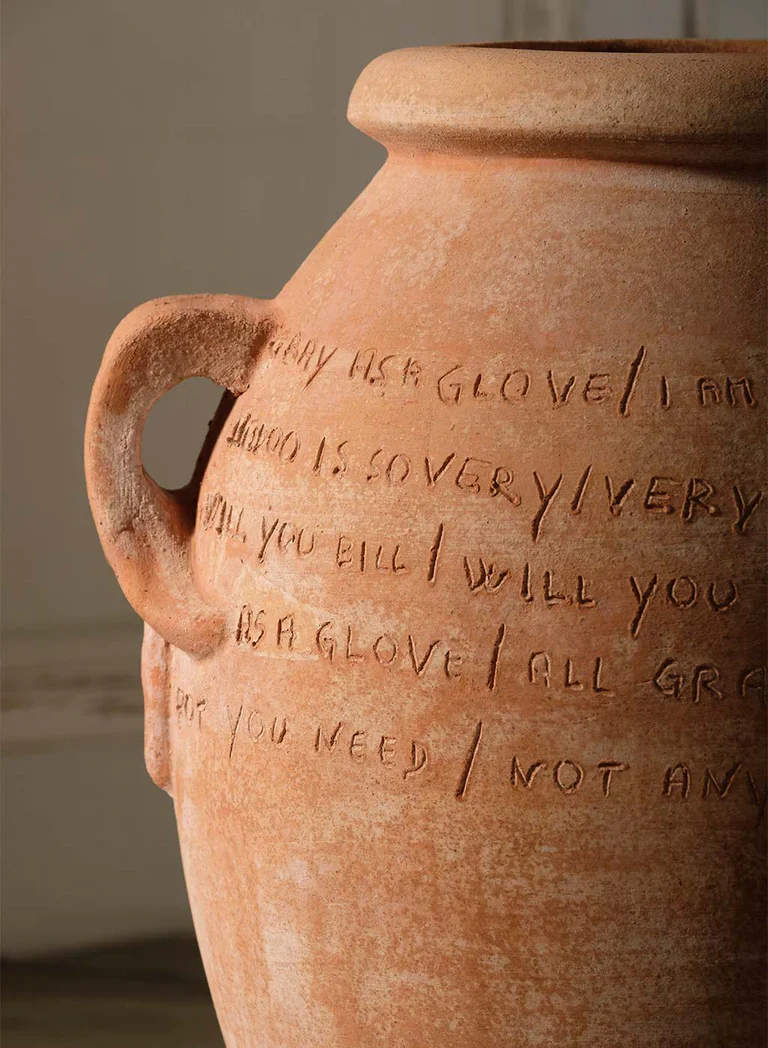 GRAY AS A GLOVE / I AM
IS SO VERY / VERY
WILL YOU BILL / WILL YOU
AS A GLOVE / ALL GRA
YOU NEED / NOT ANY